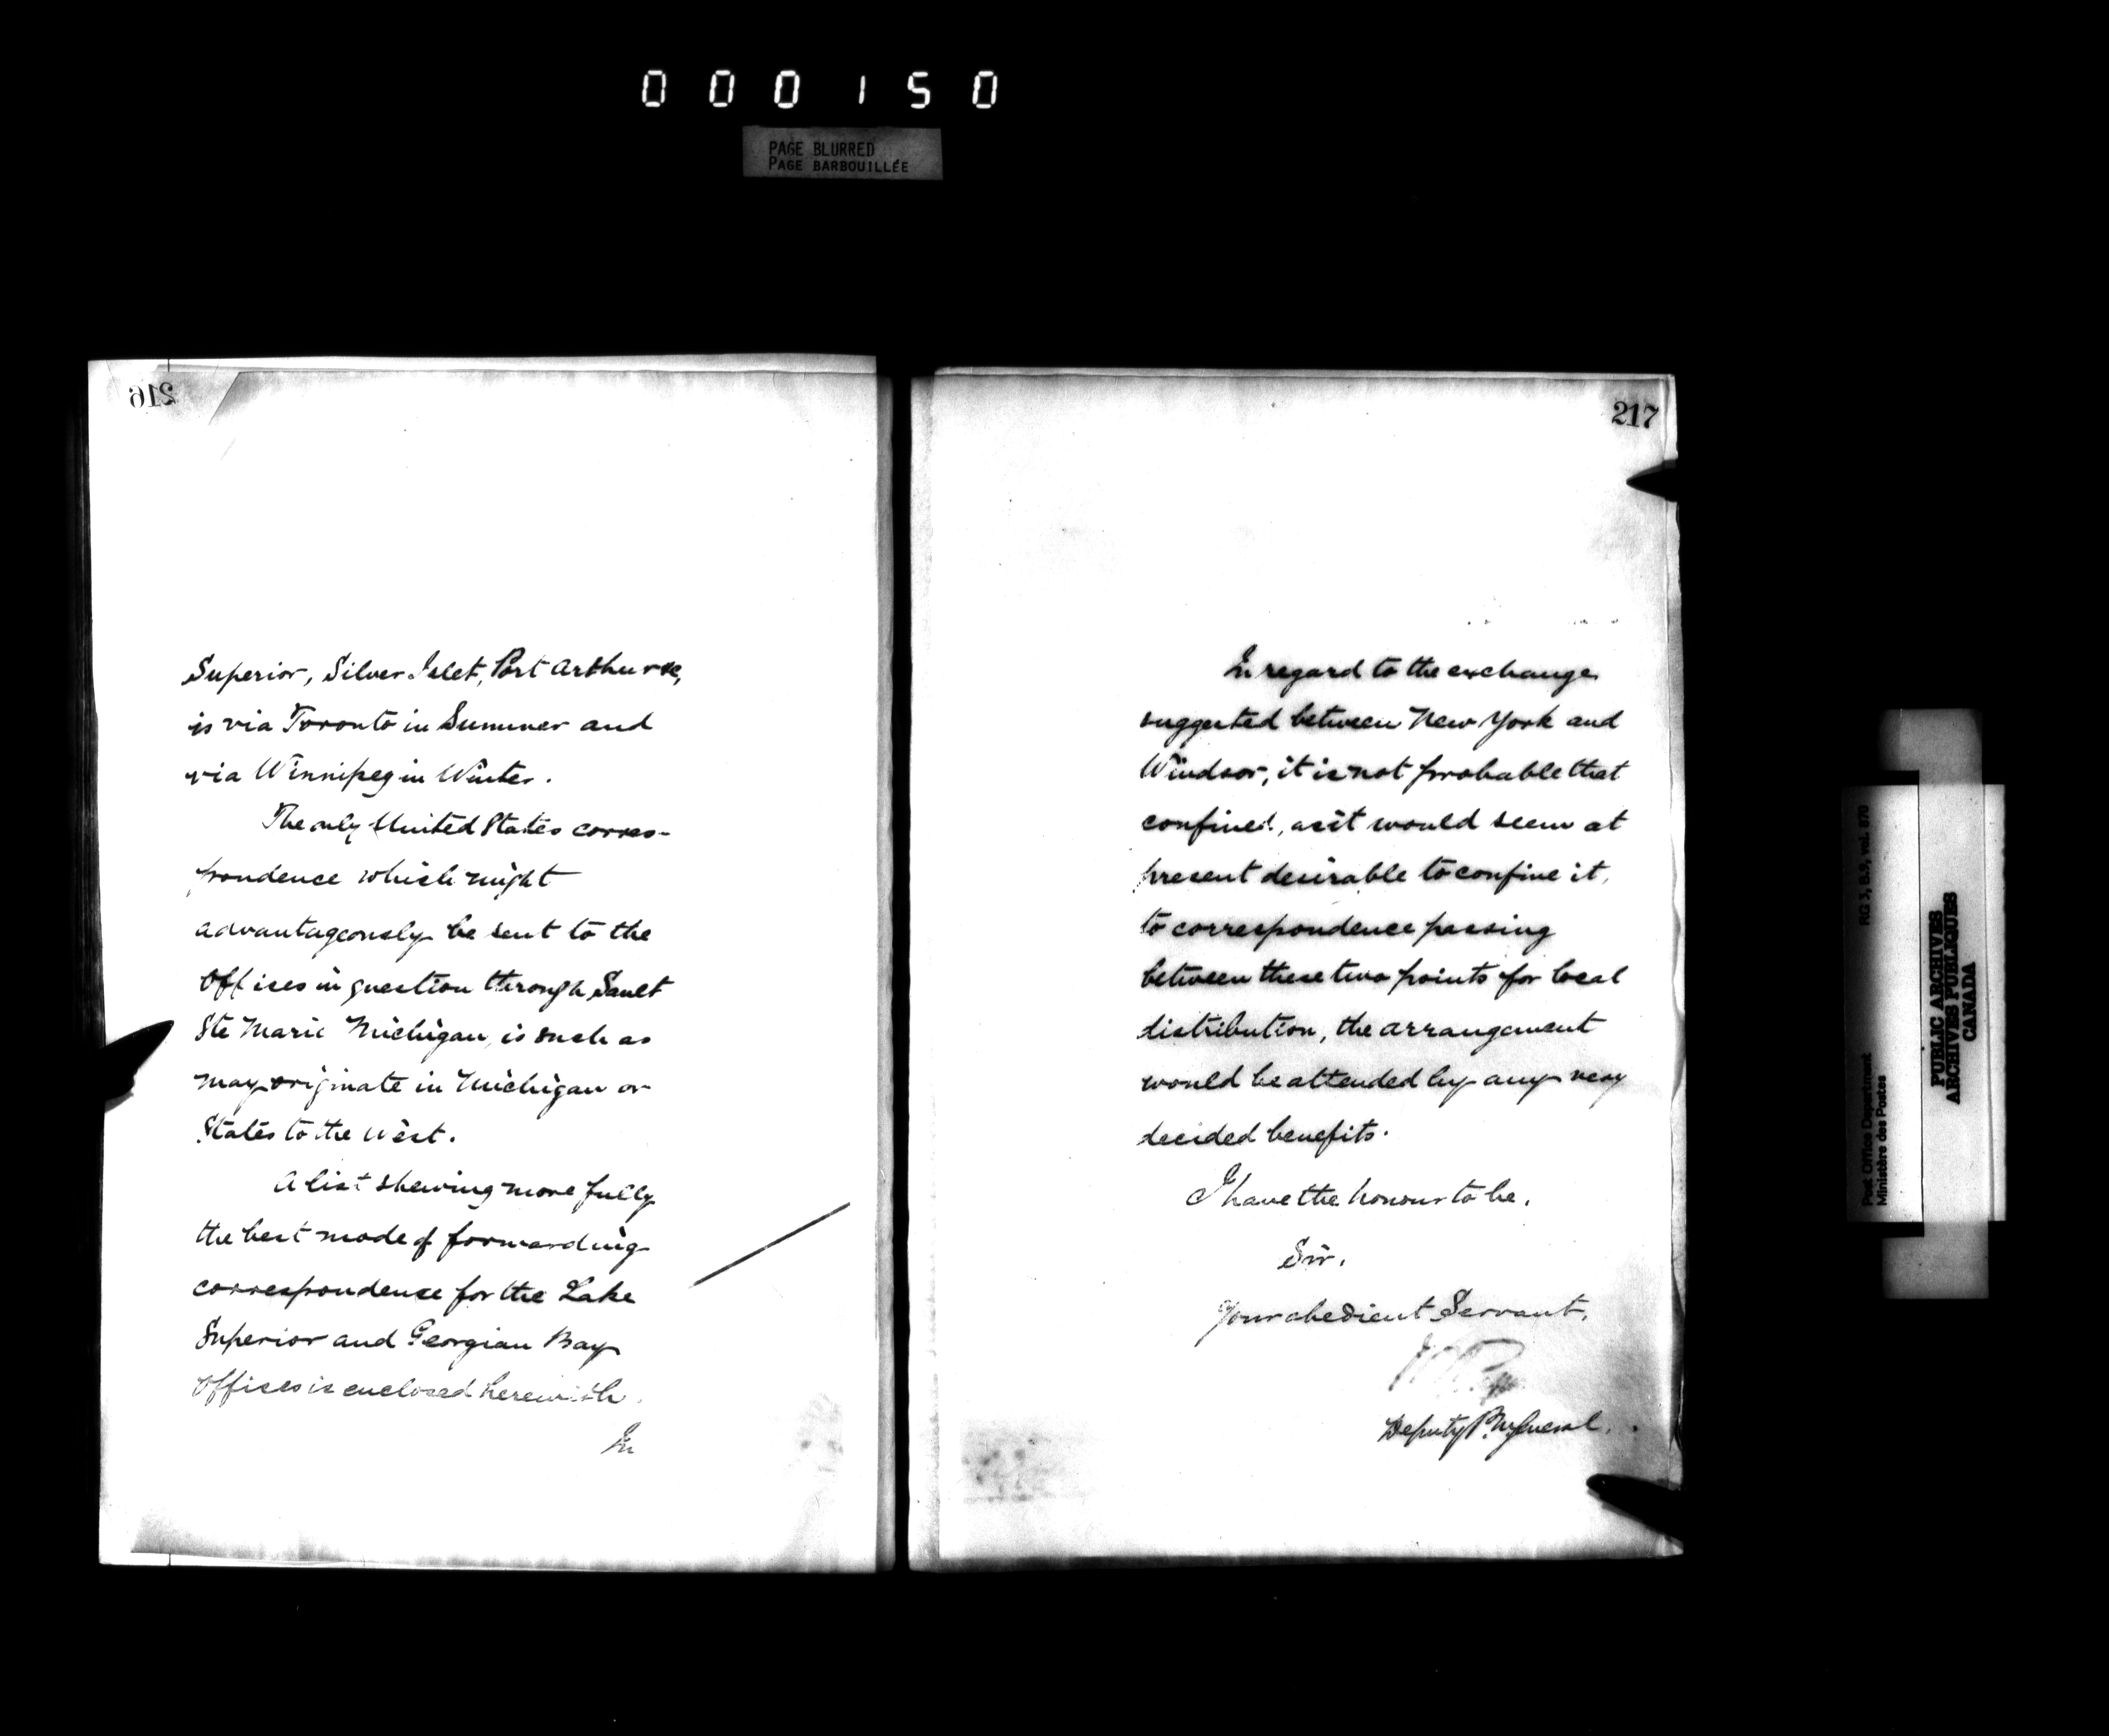 000150
PAGE BLURRED
PAGE BARBOUILLÉE
216
Superior, Silver Islet, Port Arthur &c,
is via Toronto in Summer and
via Winnipeg in Winter.
The only United States corres-
pondence which might
advantageously be sent to the
Offices in question through Sault
Ste Marie Michigan, is such as
may originate in Michigan or
States to the West.
A list shewing more fully
the best mode of forwarding
correspondence for the Lake
Superior and Georgian Bay
Offices is enclosed herewith.
In
217
In regard to the exchange
suggested between New York and
Windsor, it is not probable that
confined, as it would seem at
present desirable to confine it,
to correspondence passing
between these two points for local
distribution, the arrangement
would be attended by any very
decided benefits.
I have the honour to be,
Sir,
Your obedient Servant,
Deputy P. M. General.
Post Office Department
Ministère des Postes
RG 3, B.9, vol. 870
PUBLIC ARCHIVES
ARCHIVES PUBLIQUES
CANADA